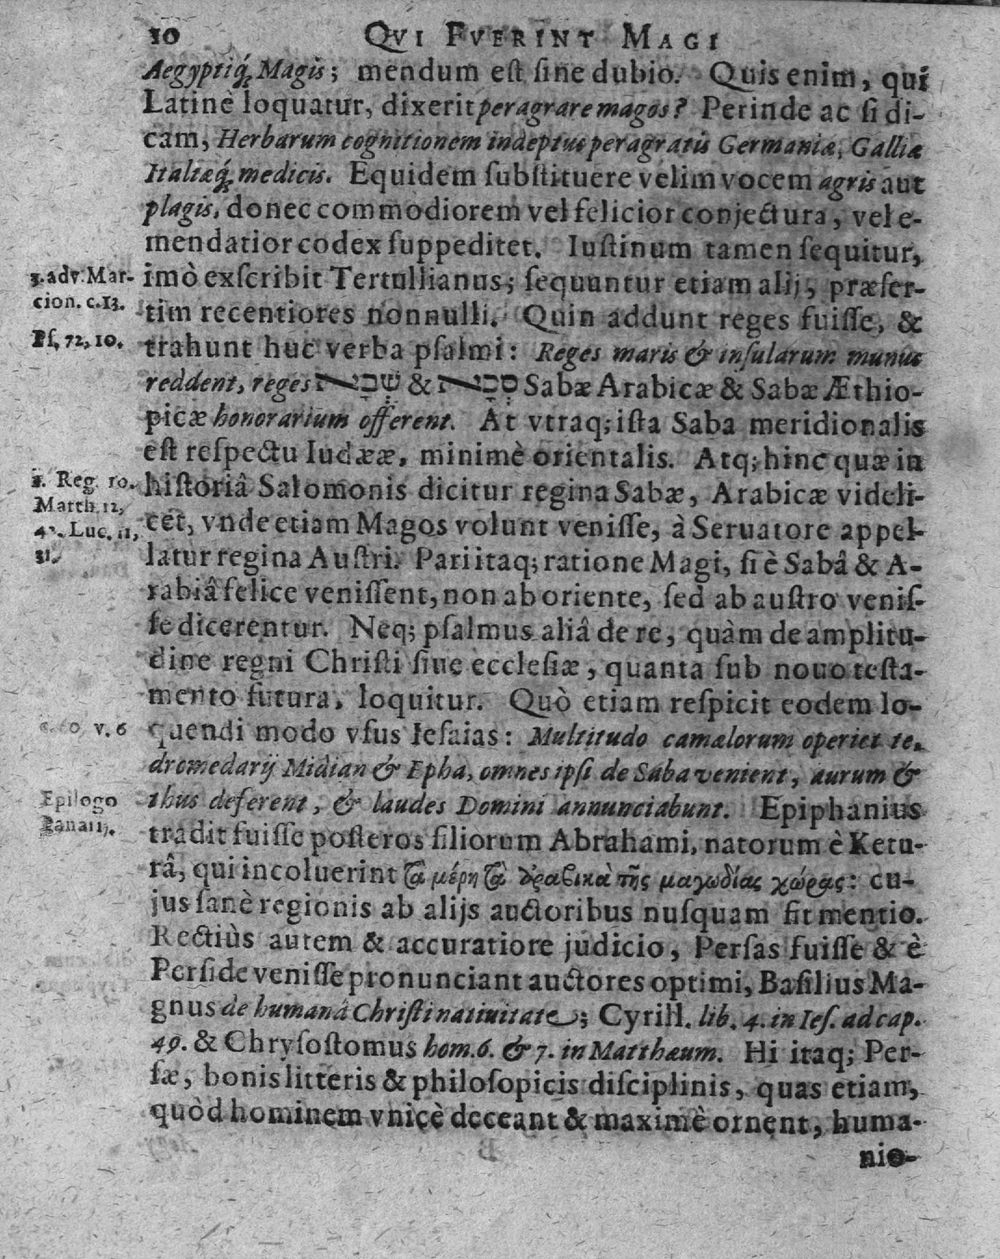 10 QVI FVERINT MAGI
Aegyptiq́; Magis; mendum est sine dubio. Quis enim, qui
Latinè loquatur, dixerit peragrare magos? Perinde ac si di-
cam, Herbarum cognitionem indeptus peragratis Germaniæ, Galliæ
Italiæq́; medicis. Equidem substituere velim vocem agris aut
plagis, donec commodiorem vel felicior conjectura, vel e-
mendatior codex suppeditet. Iustinum tamen sequitur,
3. adv. Mar-
cion. c. 13.
imò exscribit Tertullianus; sequuntur etiam alij, præser-
tim recentiores nonnulli. Quin addunt reges fuisse, &
Ps. 72, 10.
trahunt huc verba psalmi: Reges maris & insularum munus
reddent, reges שְׁבָא & סְבָא Sabæ Arabicæ & Sabæ Æthio-
picæ honorarium offerent. At vtraq; ista Saba meridionalis
est respectu Iudææ, minimè orientalis. Atq; hinc quæ in
Reg. 10.
Matth. 12,
42. Luc. 11,
31.
historiâ Salomonis dicitur regina Sabæ, Arabicæ videli-
cet, vnde etiam Magos volunt venisse, à Seruatore appel-
latur regina Austri. Pari itaq; ratione Magi, si è Sabâ & A-
rabiâ felice venissent, non ab oriente, sed ab austro venis-
se dicerentur. Neq; psalmus aliâ de re, quàm de amplitu-
dine regni Christi siue ecclesiæ, quanta sub nouo testa-
mento futura, loquitur. Quò etiam respicit eodem lo-
v. 6
quendi modo vsus Iesaias: Multitudo camelorum operiet te,
dromedarij Midian & Epha, omnes ipsi de Saba venient, aurum &
thus deferent, & laudes Domini annunciabunt. Epiphanius
Epilogo
Panarij.
tradit fuisse posteros filiorum Abrahami, natorum è Ketu-
râ, qui incoluerint τὰ μέρη τὰ ἀραβικὰ τῆς μαγωδίας χώρας: cu-
jus sanè regionis ab alijs auctoribus nusquam fit mentio.
Rectiùs autem & accuratiore judicio, Persas fuisse & è
Perside venisse pronunciant auctores optimi, Basilius Ma-
gnus de humanâ Christi natiuitate; Cyrill. lib. 4. in Ies. ad cap.
49. & Chrysostomus hom. 6. & 7. in Matthæum. Hi itaq; Per-
sæ, bonis litteris & philosopicis disciplinis, quas etiam,
quòd hominem vnicè deceant & maximè ornent, huma-
nio-